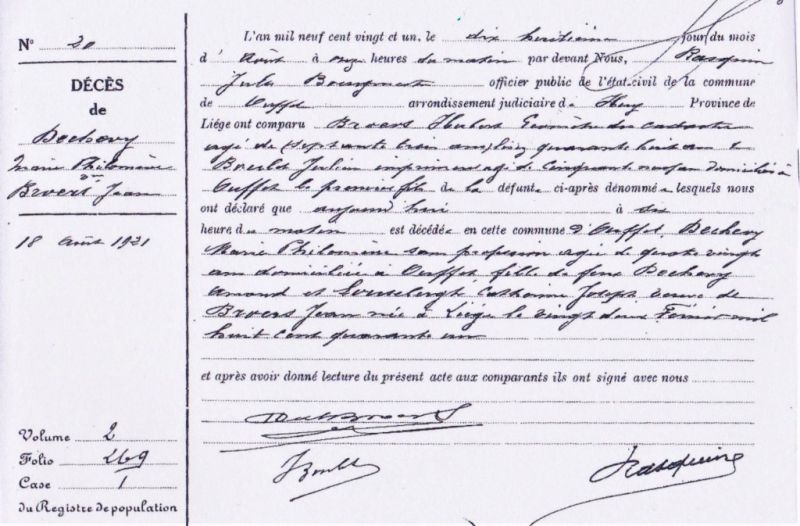 N° 20
DÉCÈS
de
Bechevy
Marie Philomène
Vve
Broers Jean
18 Août 1921
Volume 2
Folio 269
Case 1
du Registre de population
L'an mil neuf cent vingt et un, le dix huitième jour du mois
d' Août à onze heures du matin par devant Nous, Rasquin
Jules officier public de l'état-civil de la commune
de Ouffet arrondissement judiciaire de Huy Province de
Liége ont comparu Broers Hubert Géomètre du cadastre
agé de quarante huit ans et
Boulet Julien agé de cinquante neuf ans domiciliés à
Ouffet le premier fils de la défunte ci-après dénommée lesquels nous
ont déclaré que aujourd'hui à six
heure du matin est décédée en cette commune d'Ouffet, Bechevy
Marie Philomène sans profession agée de quatre vingt
ans domiciliée à Ouffet fille de feux Bechevy
Amand et Catherine Joseph veuve de
Broers Jean née à Liége le vingt deux Février mil
huit cent quarante un
et après avoir donné lecture du présent acte aux comparants ils ont signé avec nous
Hub Broers
J Boulet
J Rasquin